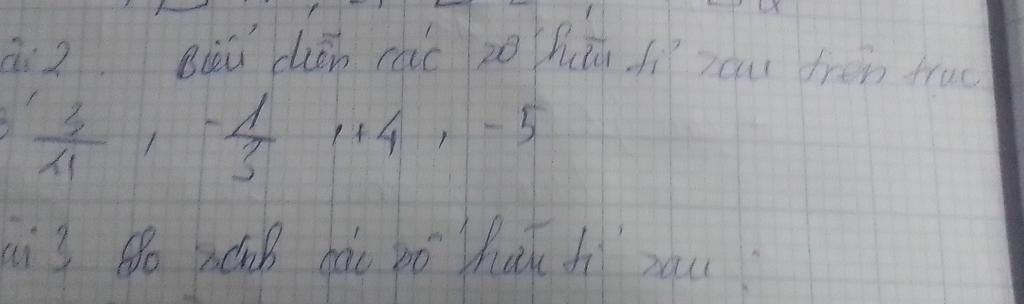 ài 2. Biểu diễn các số hữu tỉ sau trên trục
số 3/4, -1/3, +4, -5
ài 3 So sánh các số hữu tỉ sau: